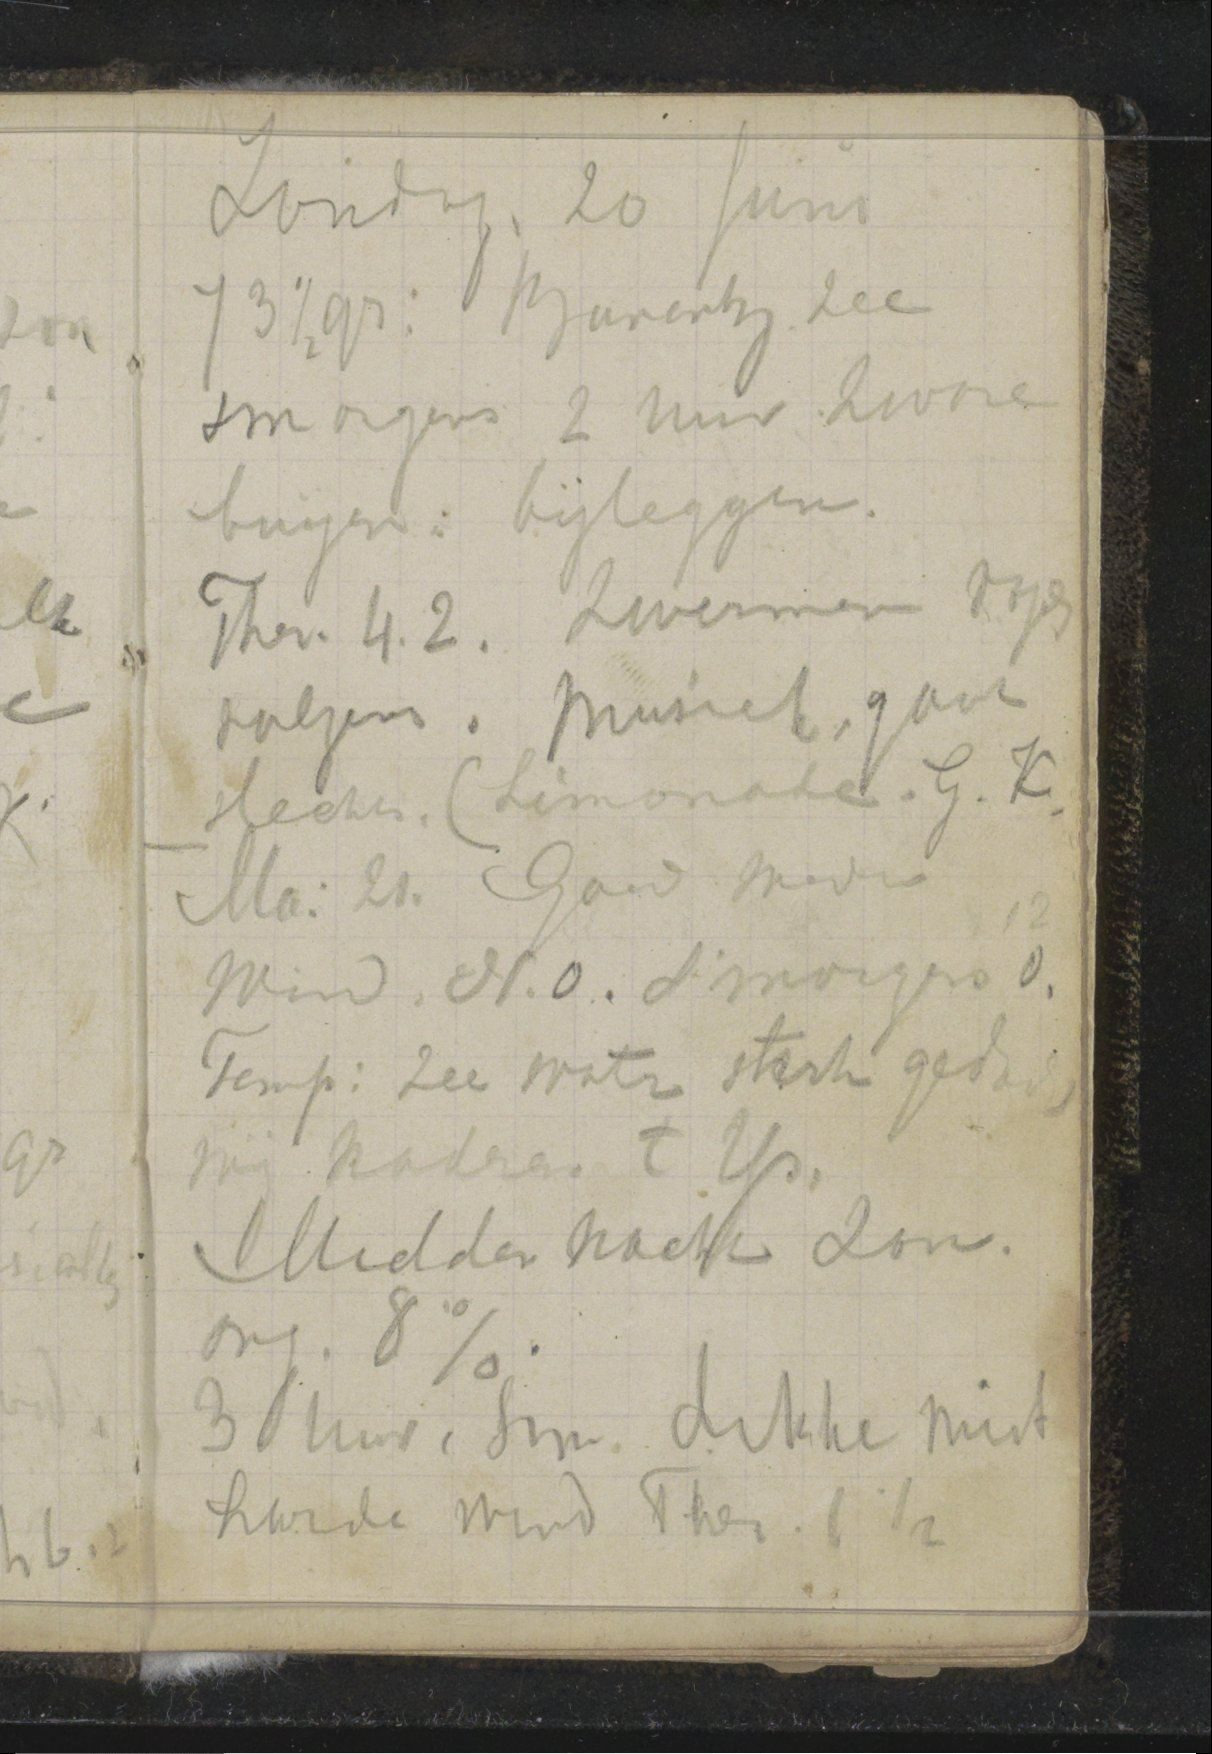 Zondag. 20 Juni
73 1/2 gr: Barentz. Zee
smorgens 2 uur. Zware
buijen: bijleggen.
Ther. 4.2. Zwermen vogels
volgens. Musiek, gaat
slecht. (Limonade. G. K.
Ma: 21. Goed weder
12
Wind. N.O. S'morgens 0.
Temp: Zee water sterk gedaald
wij naderen t Ys.
Midder nacht Zon.
org. 8 %.
3 uur, Dikke mist
harde wind Ther. 1 1/2
zon
gr